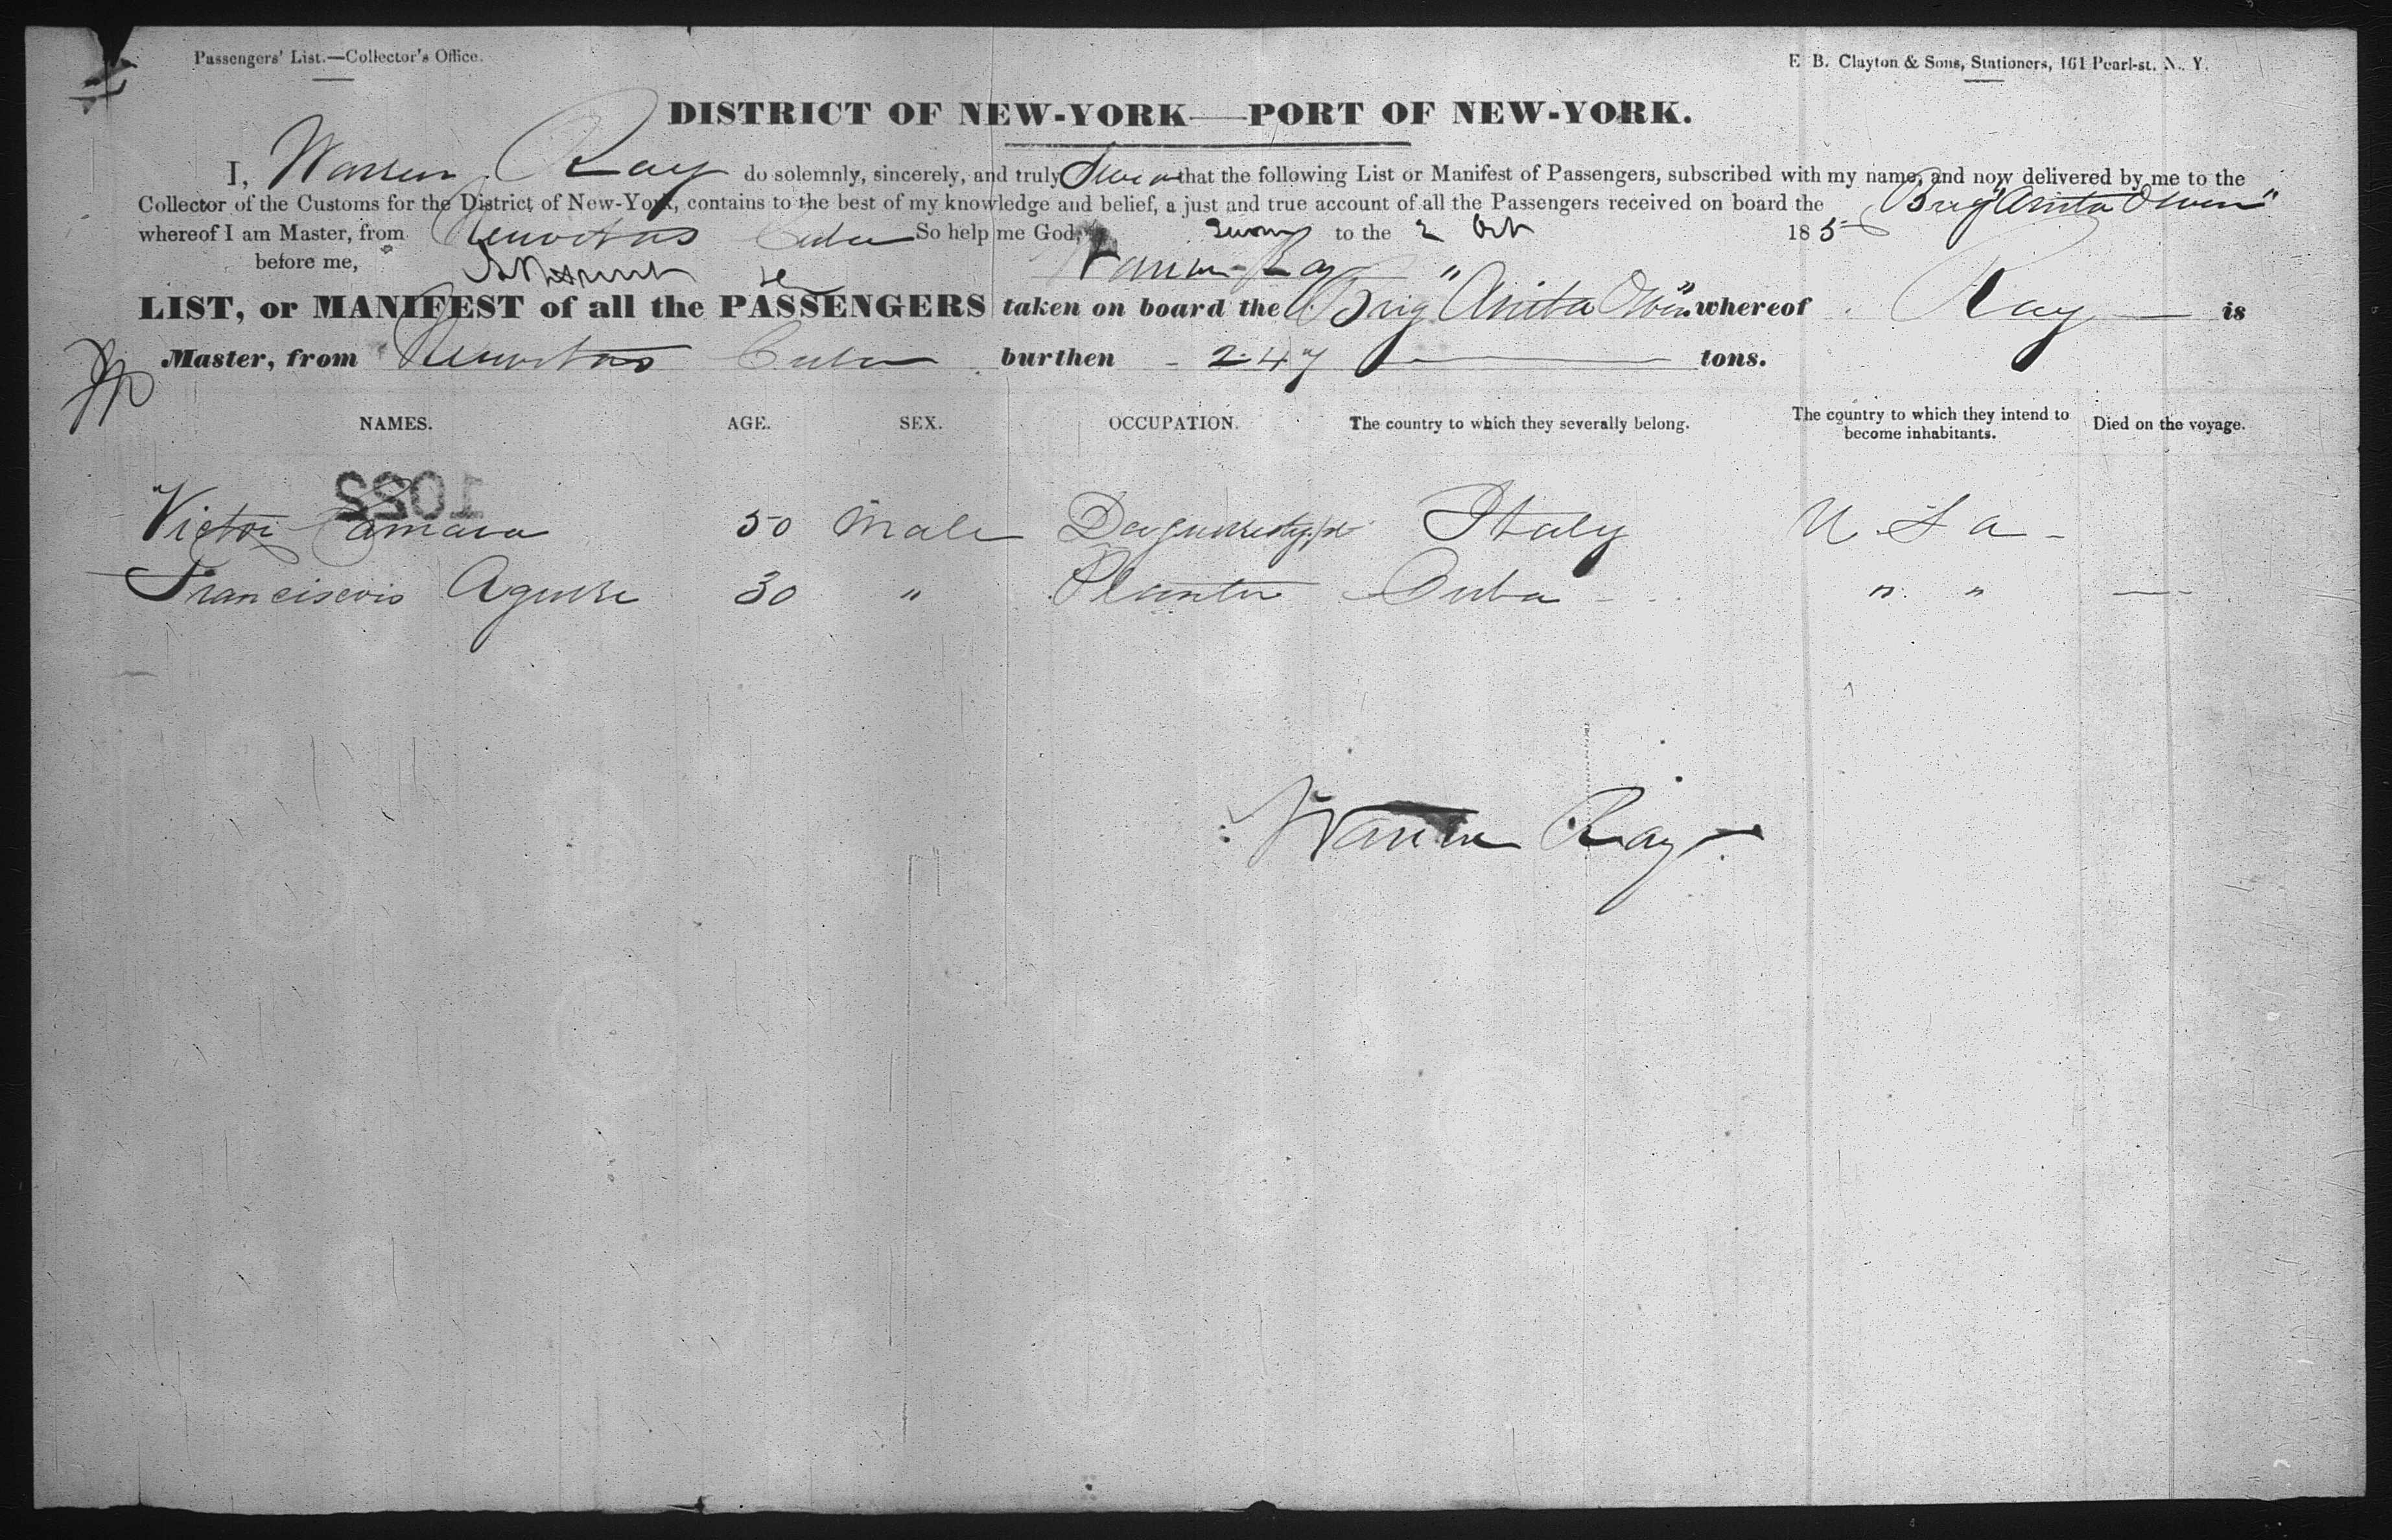 Passengers' List.—Collector's Office.
E. B. Clayton & Sons, Stationers, 161 Pearl-st. N. Y.
DISTRICT OF NEW-YORK—PORT OF NEW-YORK.
I, Warren Ray do solemnly, sincerely, and truly Swear that the following List or Manifest of Passengers, subscribed with my name, and now delivered by me to the
Collector of the Customs for the District of New-York, contains to the best of my knowledge and belief, a just and true account of all the Passengers received on board the Brig "Anita Owen"
whereof I am Master, from Neuvitas Cuba So help me God, Sworn to the 2 Oct 185
before me, Warren Ray
LIST, or MANIFEST of all the PASSENGERS taken on board the Brig "Anita Owen" whereof Ray is
Master, from Neuvitas Cuba burthen 247 tons.
NAMES. AGE. SEX. OCCUPATION. The country to which they severally belong. The country to which they intend to become inhabitants. Died on the voyage.
1022
Victor Camara 50 Male Daguerreotypist Italy U S A -
Aguire 30 " Planter Cuba " " —
Warren Ray